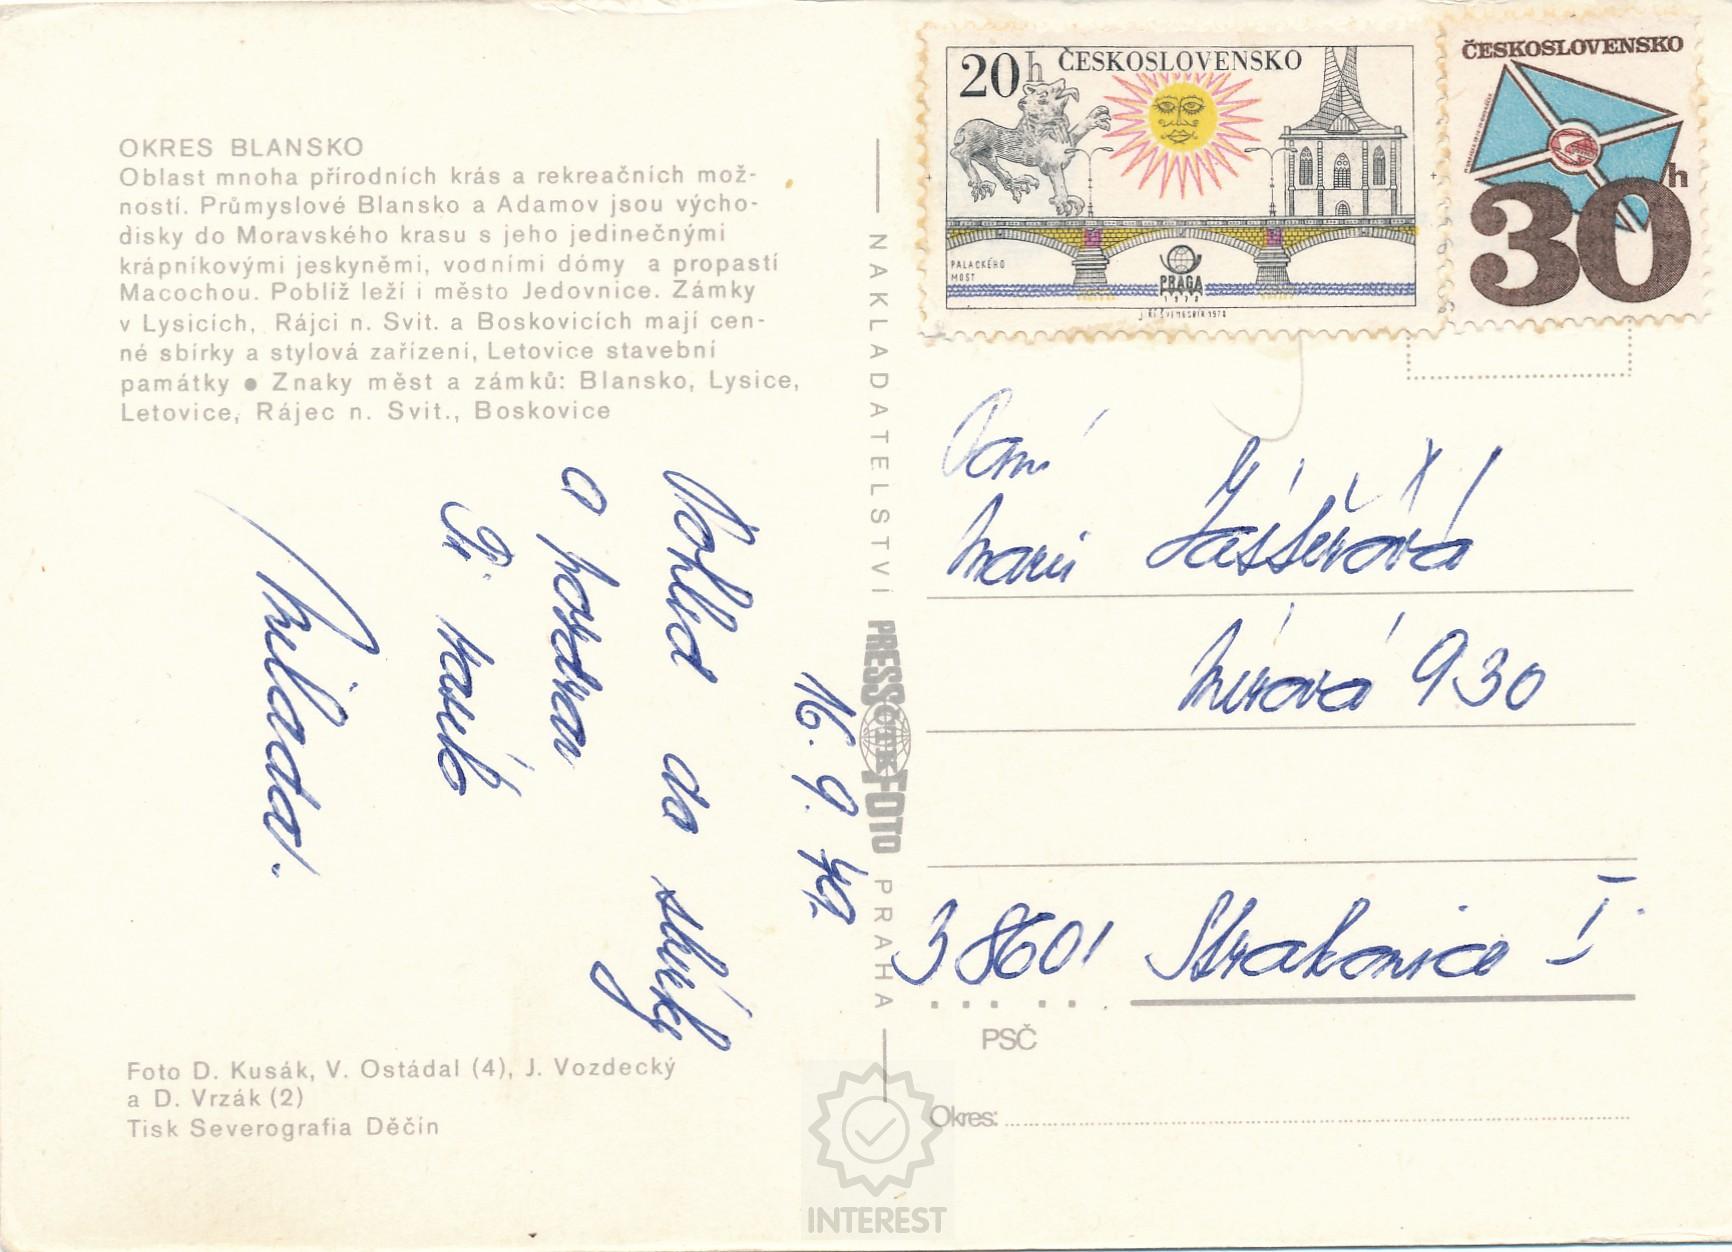 OKRES BLANSKO
Oblast mnoha přírodních krás a rekreačních mož-
ností. Průmyslové Blansko a Adamov jsou výcho-
disky do Moravského krasu s jeho jedinečnými
krápníkovými jeskyněmi, vodními dómy a propastí
Macochou. Poblíž leží i město Jedovnice. Zámky
v Lysicích, Rájci n. Svit. a Boskovicích mají cen-
né sbírky a stylová zařízení, Letovice stavební
památky ● Znaky měst a zámků: Blansko, Lysice,
Letovice, Rájec n. Svit., Boskovice
16. 9.
Pohled do sbírky
a pozdrav
Milada.
Foto D. Kusák, V. Ostádal (4), J. Vozdecký
a D. Vrzák (2)
Tisk Severografia Děčín
NAKLADATELSTVÍ PRESSFOTO PRAHA
20h ČESKOSLOVENSKO
PALACKÉHO
MOST
PRAGA
1978
ČESKOSLOVENSKO
30h
Paní
Marie
Mírová 930
38601 Strakonice I.
PSČ
Okres:
INTEREST